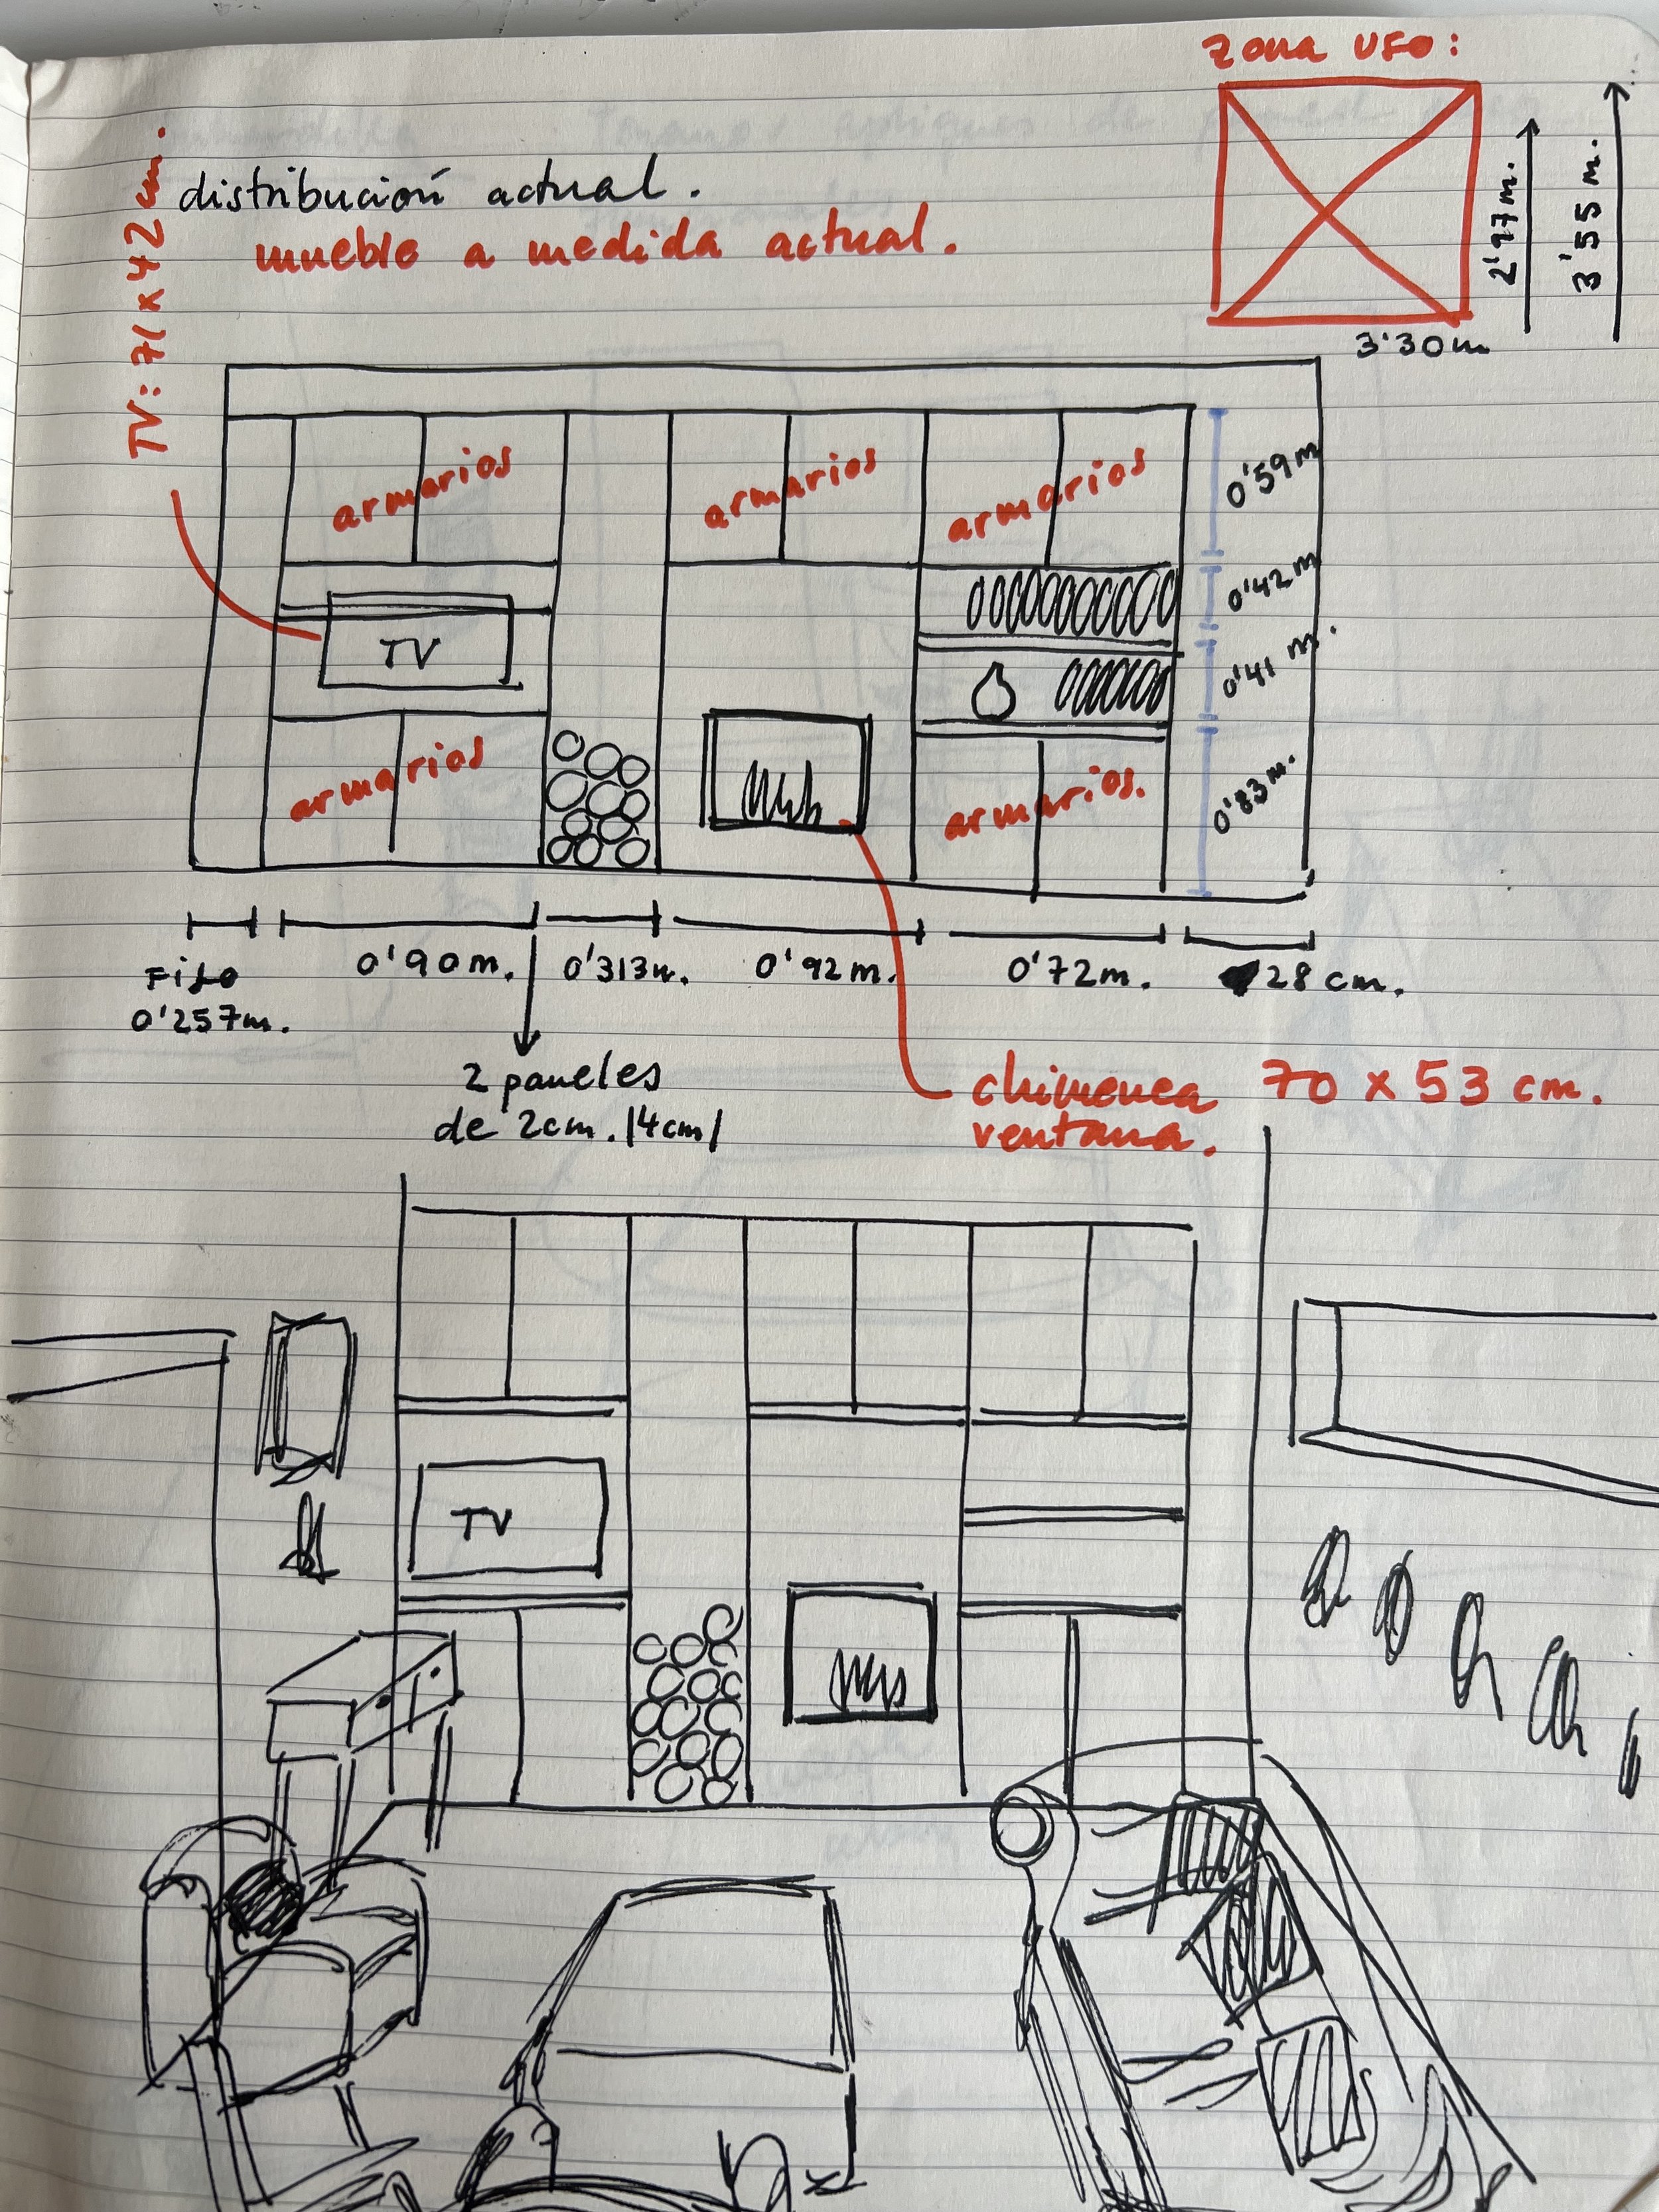 zona UFO:
2'97m.
3'55 m.
3'30m
distribución actual.
mueble a medida actual.
TV: 71 x 42 cm.
armarios
armarios
armarios
0'59m
0'42m
TV
0'41 m.
armarios
armarios.
0'83m.
Fijo
0'257m.
0'90m.
0'313m.
0'92m.
0'72m.
28 cm.
2 paneles
de 2cm. /4cm/
chimenea 70 x 53 cm.
ventana.
TV